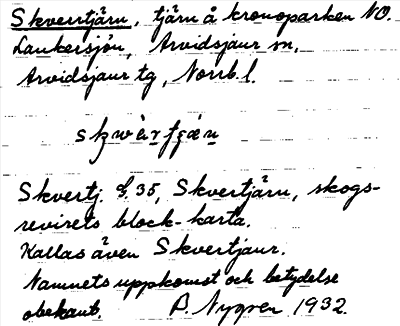 Skverrtjärn, tjärn å kronoparken NO.
Laukersjön, Arvidsjaur sn,
Arvidsjaur tg, Norrb. l.
Skvertj. G. 35, Skvertjärn, skogs-
revirets block-karta.
Kallas även Skvertjaur.
Namnets uppkomst och betydelse
obekant. P. Nygren 1932.